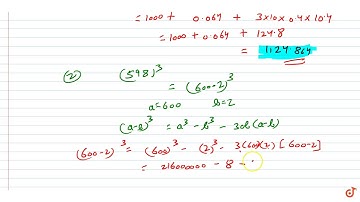 = 1000 + 0.064 + 3x10x0.4x10.4
= 1000 + 0.064 + 124.8
= 1124.864
② (598)³
= (600-2)³
a=600 b=2
(a-b)³ = a³ - b³ - 3ab(a-b)
(600-2)³ = (600)³ - (2)³ - 3(600)(2) [600-2]
= 216000000 - 8 -